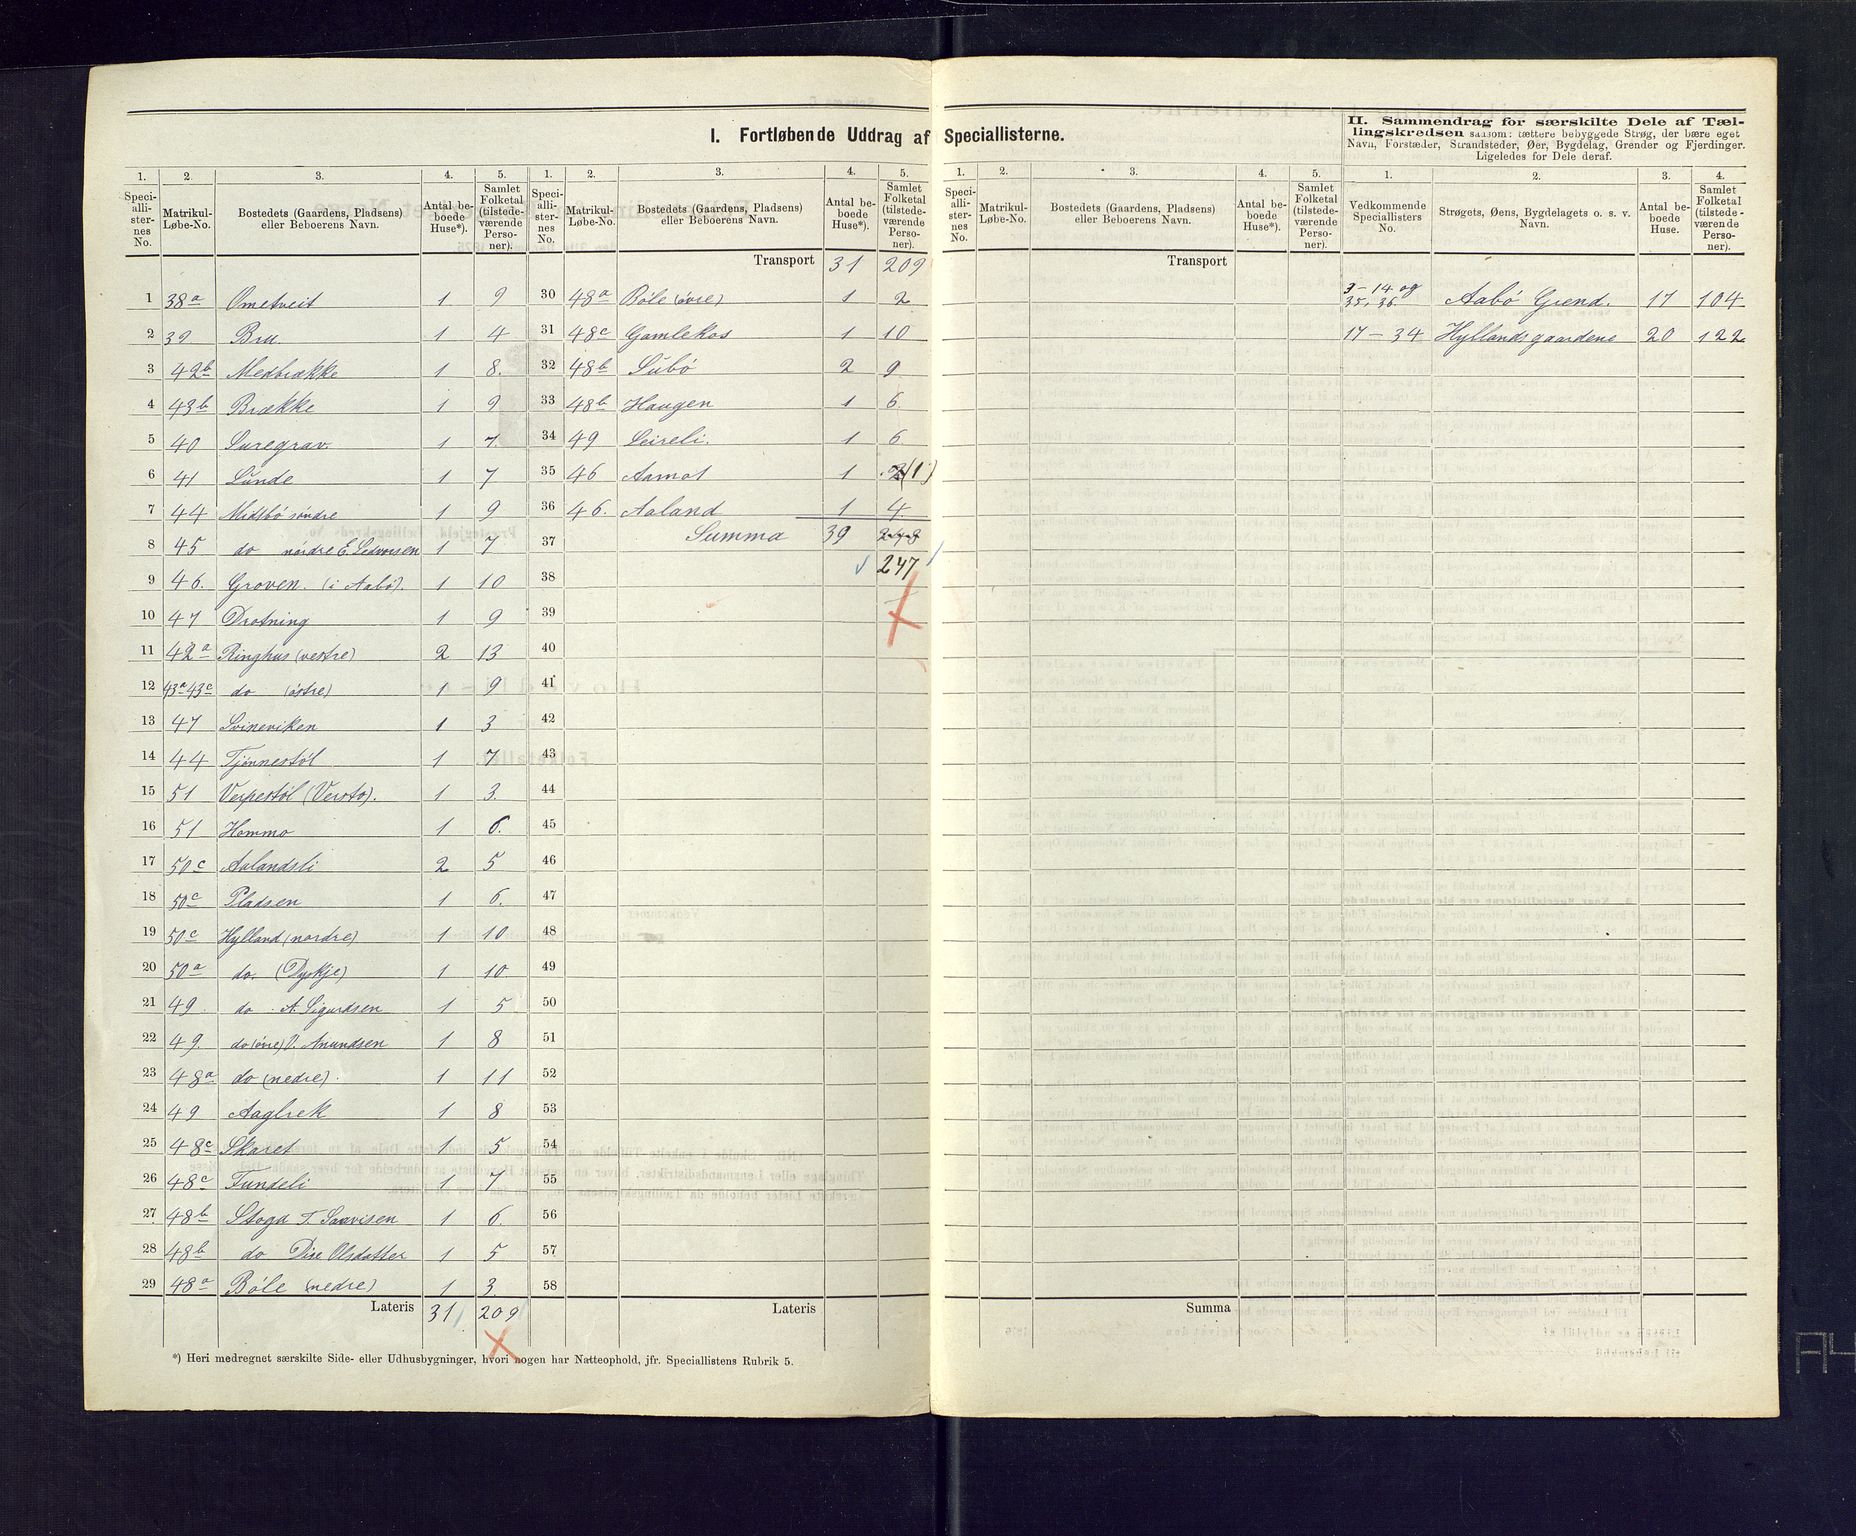 I. Fortløbende Uddrag af Speciallisterne.
1. 2. 3. 4. 5.
Speciallisternes No. Matrikul-Løbe-No. Bostedets (Gaardens, Pladsens) eller Beboerens Navn. Antal beboede Huse*). Samlet Folketal (tilstedeværende Personer).
1 38a Ometveit 1 9
2 39 Bru 1 4
3 42b Medbrække 1 8.
4 43b Brække 1 9
5 40 Suregrav. 1 7.
6 41 Lunde 1 7
7 44 Midsbø søndre 1 9
8 45 do nordre E. Sedvorsen 1 7
9 46. Groven. (i Aabø). 1 10
10 47 Drotning 1 9
11 42a Ringhus (vestre) 2 13
12 43a 43c do (østre) 1 9
13 47 Svineviken 1 3
14 44 Tjønnestøl 1 7
15 51 Verpestøl (Versto). 1 3.
16 51 Hommo 1 6.
17 50c Aalandsli 2 5
18 50c Pladsen 1 6.
19 50c Hylland (nordre) 1 10
20 50a do. (Dyskje) 1 10.
21 49. do A. Sigurdsen 1 5
22 49. do (øvre) V. Anundsen 1 8
23 48a do (nedre). 1 11
24 49 Aaglrek 1 8
25 48c Skaret 1 5
26 48c Tundeli 1 7
27 48b Stoga T. Saavisen 1 6.
28 48b do Dise Olsdatter 1 5
29 48a Bøle (nedre) 1 3
Lateris 31 209
1. 2. 3. 4. 5.
Speciallisternes No. Matrikul-Løbe-No. Bostedets (Gaardens, Pladsens) eller Beboerens Navn. Antal beboede Huse*). Samlet Folketal (tilstedeværende Personer).
Transport 31 209
30 48a Bøle (øvre) 1 2
31 48c Gamlekos 1 10
32 48b Subø 2 9
33 48b Haugen 1 6.
34 49 Leireli. 1 6
35 46 Aamot 1 2 (1)
36 46. Aaland 1 4.
37 Summa 39 248
38 247
39
40
41
42
43
44
45
46
47
48
49
50
51
52
53
54
55
56
57
58
Lateris
*) Heri medregnet særskilte Side- eller Udhusbygninger, hvori nogen har Natteophold, jfr. Speciallistens Rubrik 5.
1. 2. 3. 4. 5.
Speciallisternes No. Matrikul-Løbe-No. Bostedets (Gaardens, Pladsens) eller Beboerens Navn. Antal beboede Huse*). Samlet Folketal (tilstedeværende Personer).
Transport
Summa
II. Sammendrag for særskilte Dele af Tællingskredsen saasom: tættere bebyggede Strøg, der bære eget Navn, Forstæder, Strandsteder, Øer, Bygdelag, Grender og Fjerdinger. Ligeledes for Dele deraf.
1. 2. 3. 4.
Vedkommende Speciallisters No. Strøgets, Øens, Bygdelagets o. s. v. Navn. Antal beboede Huse. Samlet Folketal (tilstedeværende Personer).
3-14 og 35, 36 Aabø Grend. 17 104
17-34 Hyllandsgaardene 20 122